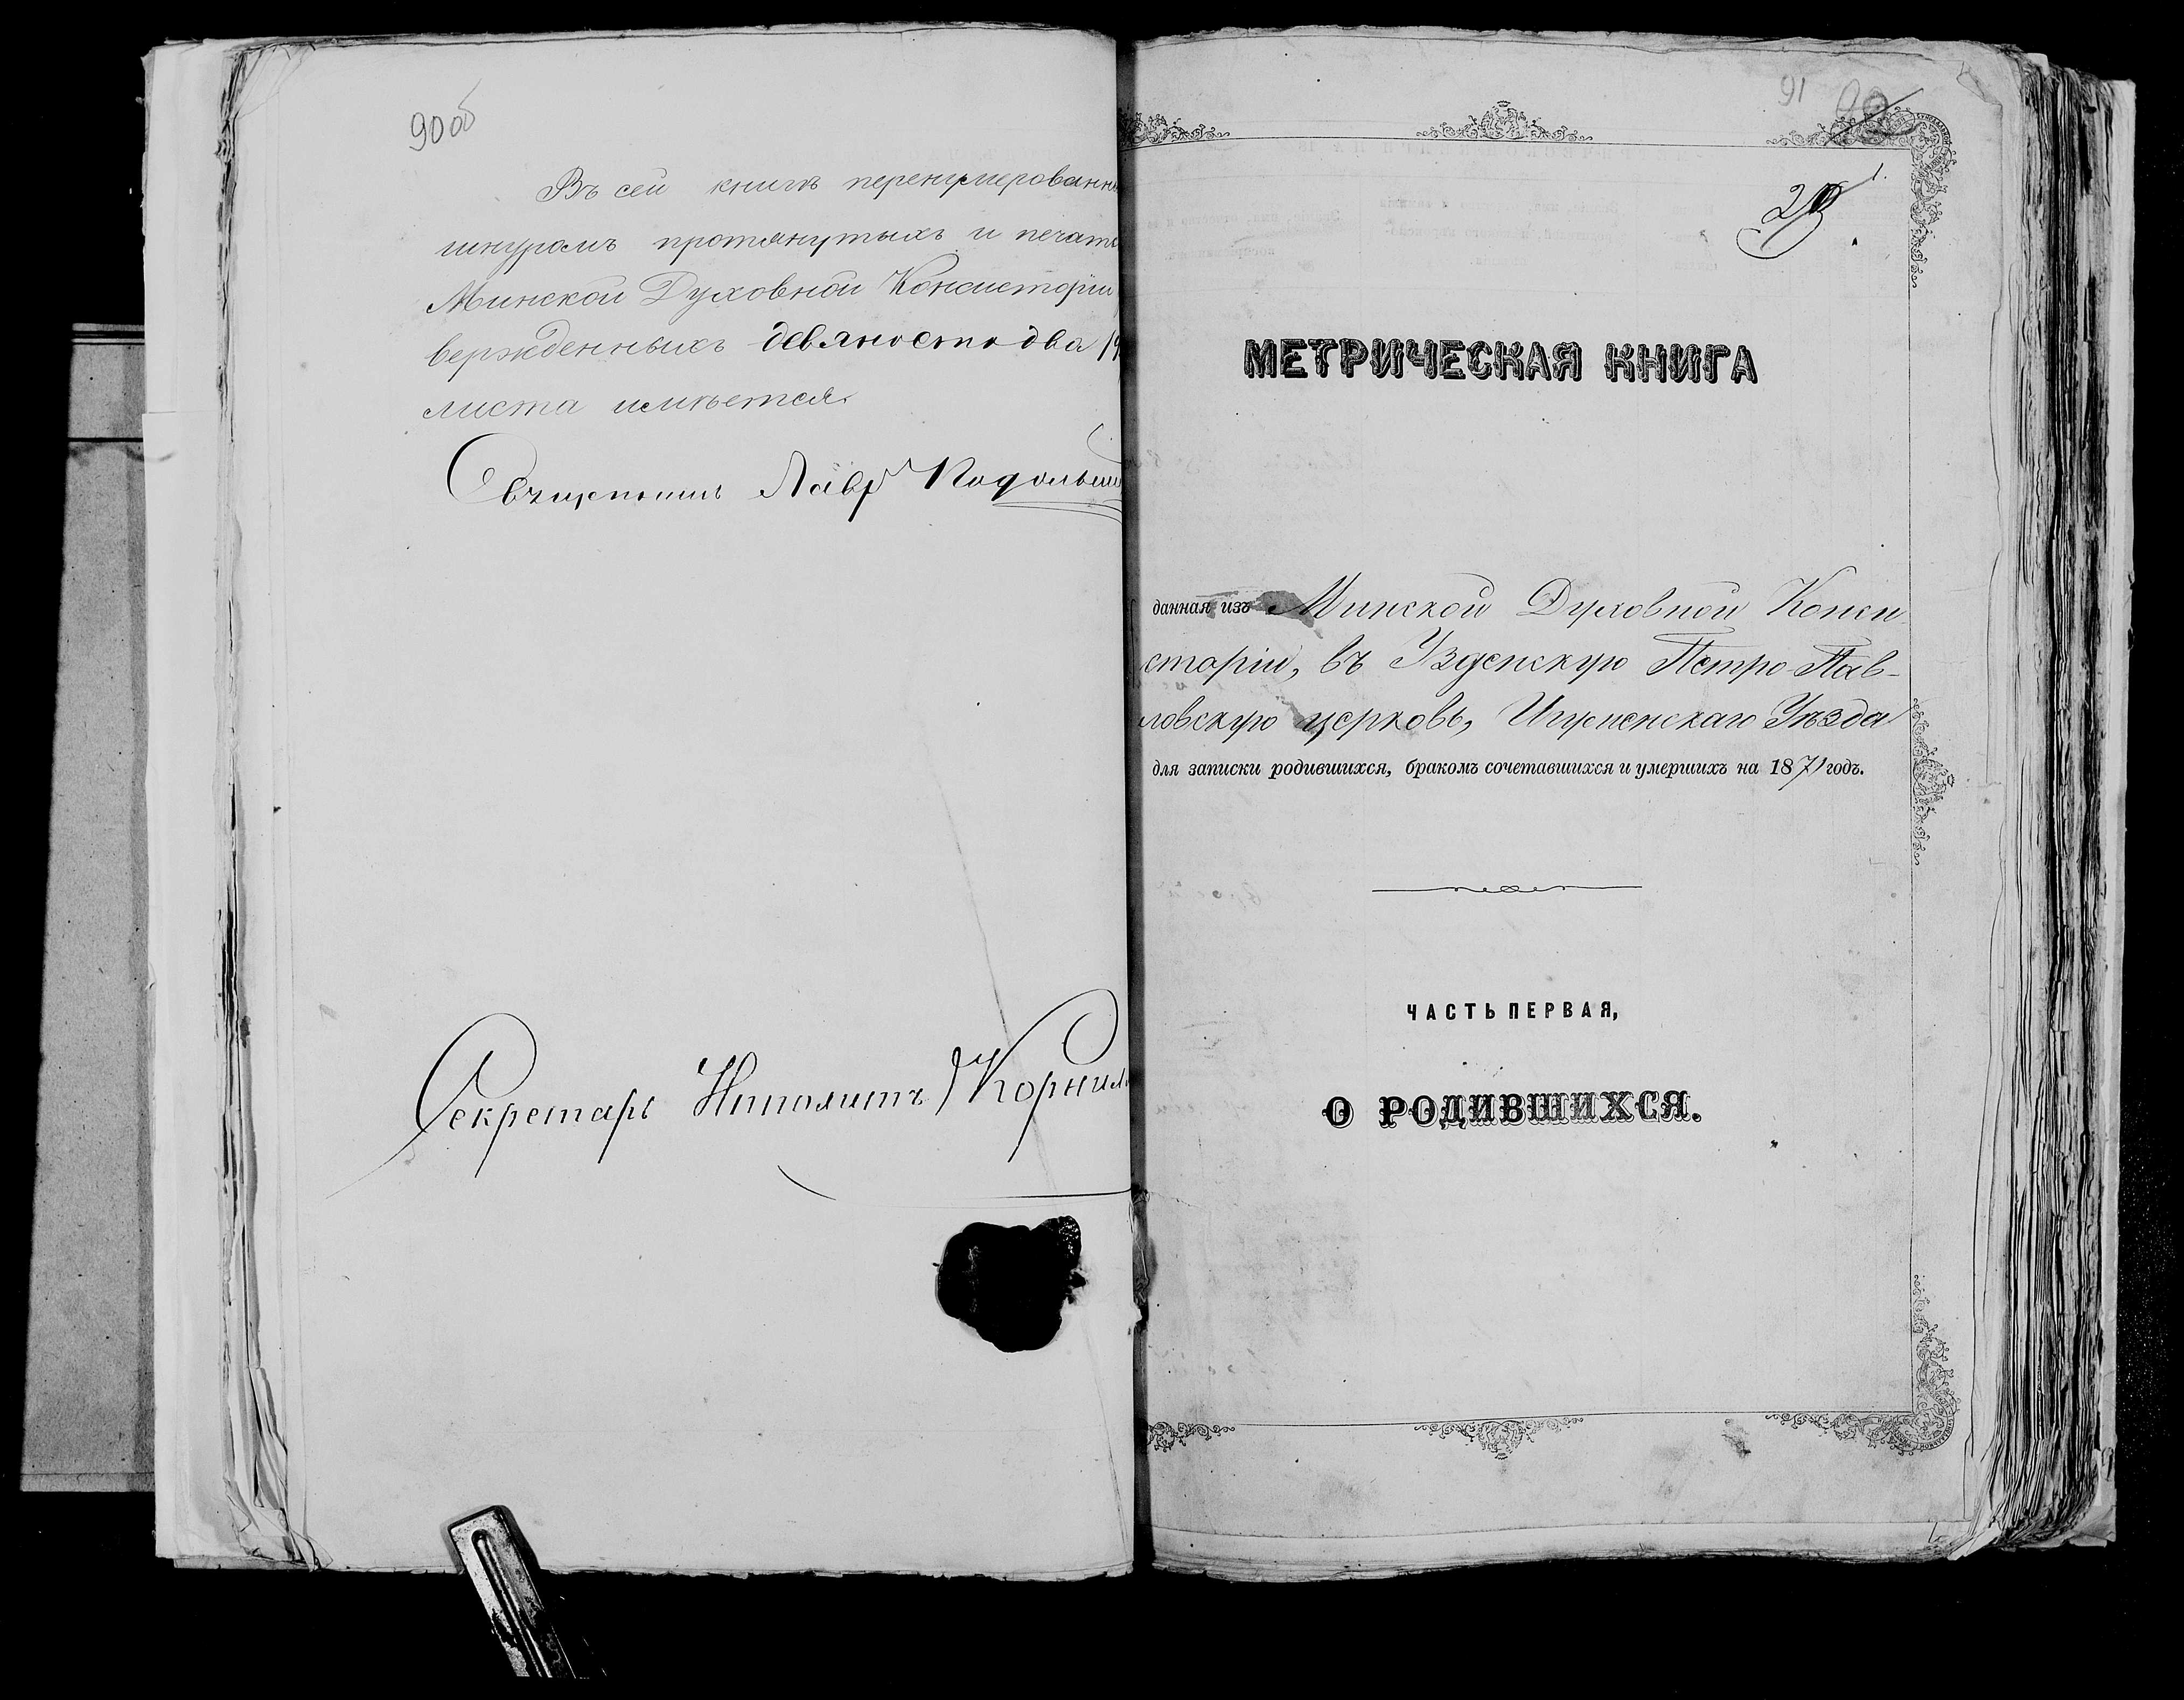 90об
Въ сей книгѣ перенумерованн
шнуромъ протянутыхъ и печат
Минской Духовной Консисторіи
вержденныхъ девяносто два
листа имѣется.
Священникъ Лавр Подольск
Секретарь Ипполитъ Корнил
91
МЕТРИЧЕСКАЯ КНИГА
данная изъ Минской Духовной Конси
сторіи, въ Узденскую Петро-Пав-
ловскую церковь, Игуменскаго Уѣзда
для записки родившихся, бракомъ сочетавшихся и умершихъ на 1871 годъ.
ЧАСТЬ ПЕРВАЯ,
О РОДИВШИХСЯ.